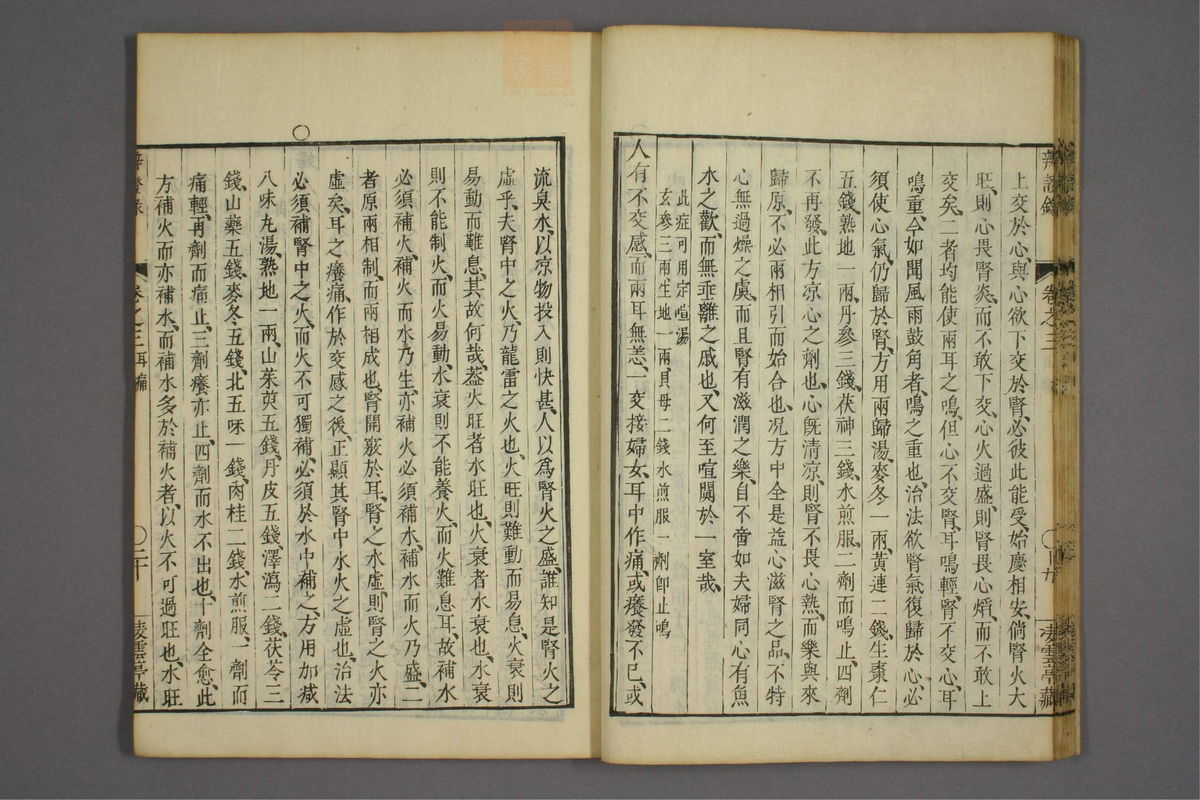 辨證錄 卷之三 凌雲亭藏
上交於心、與心欲下交於腎、必彼此能受、始慶相安、倘腎火大
旺、則心畏腎炎、而不敢下交、心火過盛、則腎畏心熖、而不敢上
交矣、二者均能使兩耳之鳴、但心不交腎、耳鳴輕、腎不交心、耳
鳴重、今如聞風雨鼓角者、鳴之重也、治法欲腎氣復歸於心、必
須使心氣、仍歸於腎、方用兩歸湯、麥冬一兩、黃連二錢、生棗仁
五錢、熟地一兩、丹參三錢、茯神三錢、水煎服、二劑而鳴止、四劑
不再發、此方凉心之劑也、心旣淸凉、則腎不畏心熱、而樂與來
歸原、不必兩相引而始合也、况方中全是益心滋腎之品、不特
心無過燥之虞、而且腎有滋潤之樂、自不啻如夫婦同心、有魚
水之歡、而無乖離之戚也、又何至喧鬧於一室哉、
此症可用定喧湯
玄參三兩生地一兩貝母二錢水煎服一劑卽止鳴
人有不交感、而兩耳無恙、一交接婦女、耳中作痛、或癢發不已、或
流臭水、以凉物投入則快甚、人以爲腎火之盛、誰知是腎火之
虛乎、夫腎中之火、乃龍雷之火也、火旺則難動而易息、火衰則
易動而難息、其故何哉、葢火旺者水旺也、火衰者水衰也、水衰
則不能制火、而火易動、水衰則不能養火、而火難息耳、故補水
必須補火、補火而水乃生、亦補火必須補水、補水而火乃盛、二
者原兩相制、而兩相成也、腎開竅於耳、腎之水虛、則腎之火亦
虛矣、耳之癢痛、作於交感之後、正顯其腎中水火之虛也、治法
必須補腎中之火、而火不可獨補、必須於水中補之、方用加减
八味丸湯、熟地一兩、山茱萸五錢、丹皮五錢、澤瀉二錢、茯苓三
錢、山藥五錢、麥冬五錢、北五味一錢、肉桂二錢、水煎服、一劑而
痛輕、再劑而痛止、三劑癢亦止、四劑而水不出也、十劑全愈、此
方補火而亦補水、而補水多於補火者、以火不可過旺也、水旺
辨證錄 卷之三 耳痛 二十 凌雲亭藏